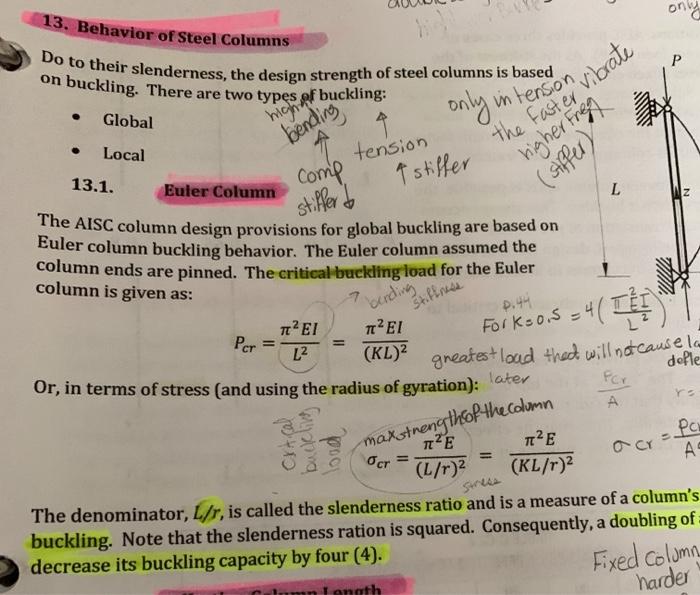 only
13. Behavior of Steel Columns
Do to their slenderness, the design strength of steel columns is based
on buckling. There are two types of buckling:
• Global
• Local
bending
comp
stiffer ↓
tension
↑ stiffer
only in tension
the Faster vibrate
higher Freq
(stiffer)
P
L
z
13.1. Euler Column
The AISC column design provisions for global buckling are based on
Euler column buckling behavior. The Euler column assumed the
column ends are pinned. The critical buckling load for the Euler
column is given as:
bending stiffness
P_cr = π²EI / L² = π²EI / (KL)²
p.44
For K=0.5 = 4(π²EI / L²)
greatest load that will not cause la
defle
later
Or, in terms of stress (and using the radius of gyration):
Pcr / A
r =
critical
buckling
load
max strength of the column
σ_cr = π²E / (L/r)² = π²E / (KL/r)²
stress
σcr = Pc / A
The denominator, L/r, is called the slenderness ratio and is a measure of a column's
buckling. Note that the slenderness ration is squared. Consequently, a doubling of
decrease its buckling capacity by four (4).
Fixed Column
harder
Length